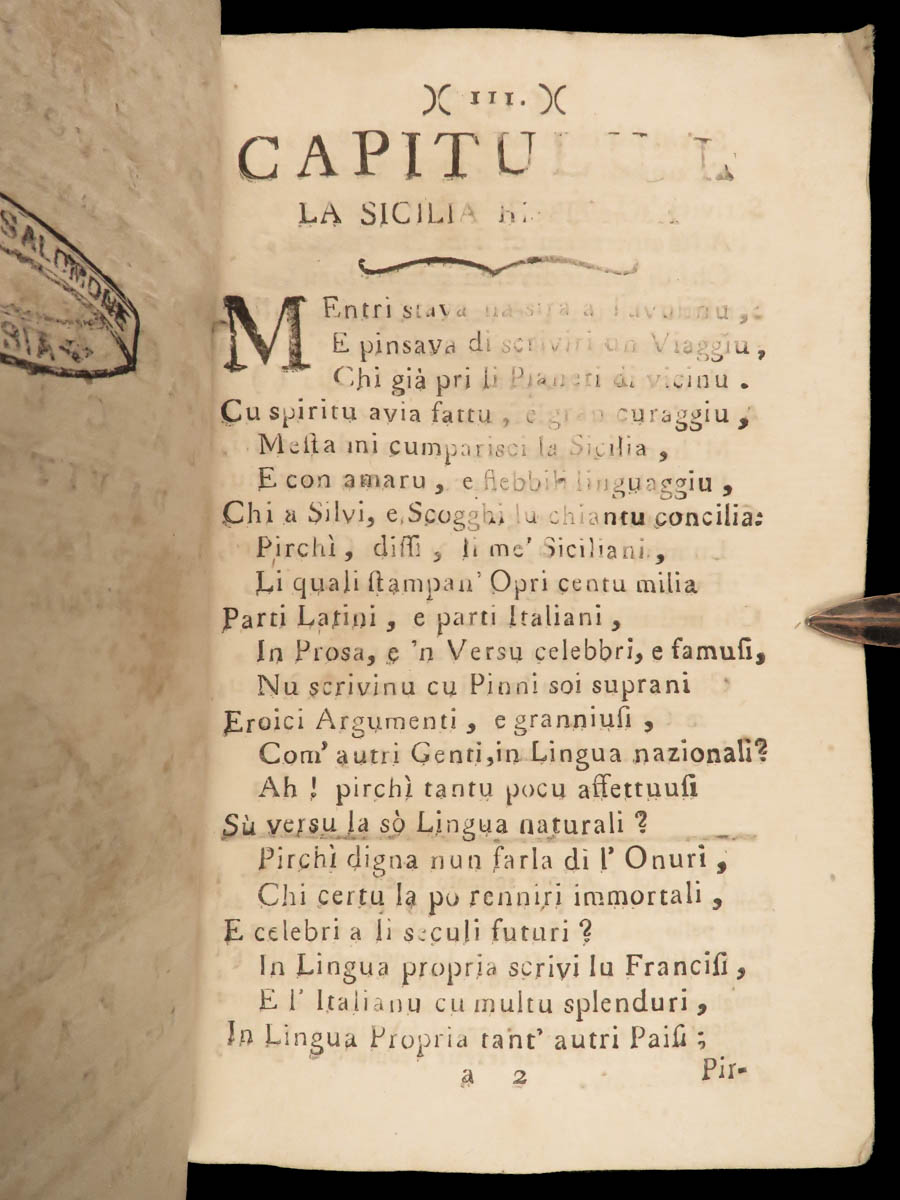 SALOMONE
SIA
III.
CAPITULU I.
LA SICILIA
MEntri stava na stra a Tavulinu,
E pinsava di scriviri un Viaggiu,
Chi già pri li Pianeti di vicinu.
Cu spiritu avia fattu, e gran curaggiu,
Meſta mi cumparisci la Sicilia,
E con amaru, e flebbili linguaggiu,
Chi a Silvi, e Scogghi lu chiantu concilia:
Pirchì, diſſi, li me' Siciliani,
Li quali ſtampan' Opri centu milia
Parti Latini, e parti Italiani,
In Prosa, e 'n Versu celebbri, e famuſi,
Nu scrivinu cu Pinni soi suprani
Eroici Argumenti, e granniuſi,
Com' autri Genti, in Lingua nazionali?
Ah! pirchì tantu pocu affettuuſi
Sù versu la sò Lingua naturali?
Pirchì digna nun farla di l' Onuri,
Chi certu la po renniri immortali,
E celebri a li seculi futuri?
In Lingua propria scrivi lu Franciſi,
E l' Italianu cu multu splenduri,
In Lingua Propria tant' autri Paiſi;
a 2
Pir-